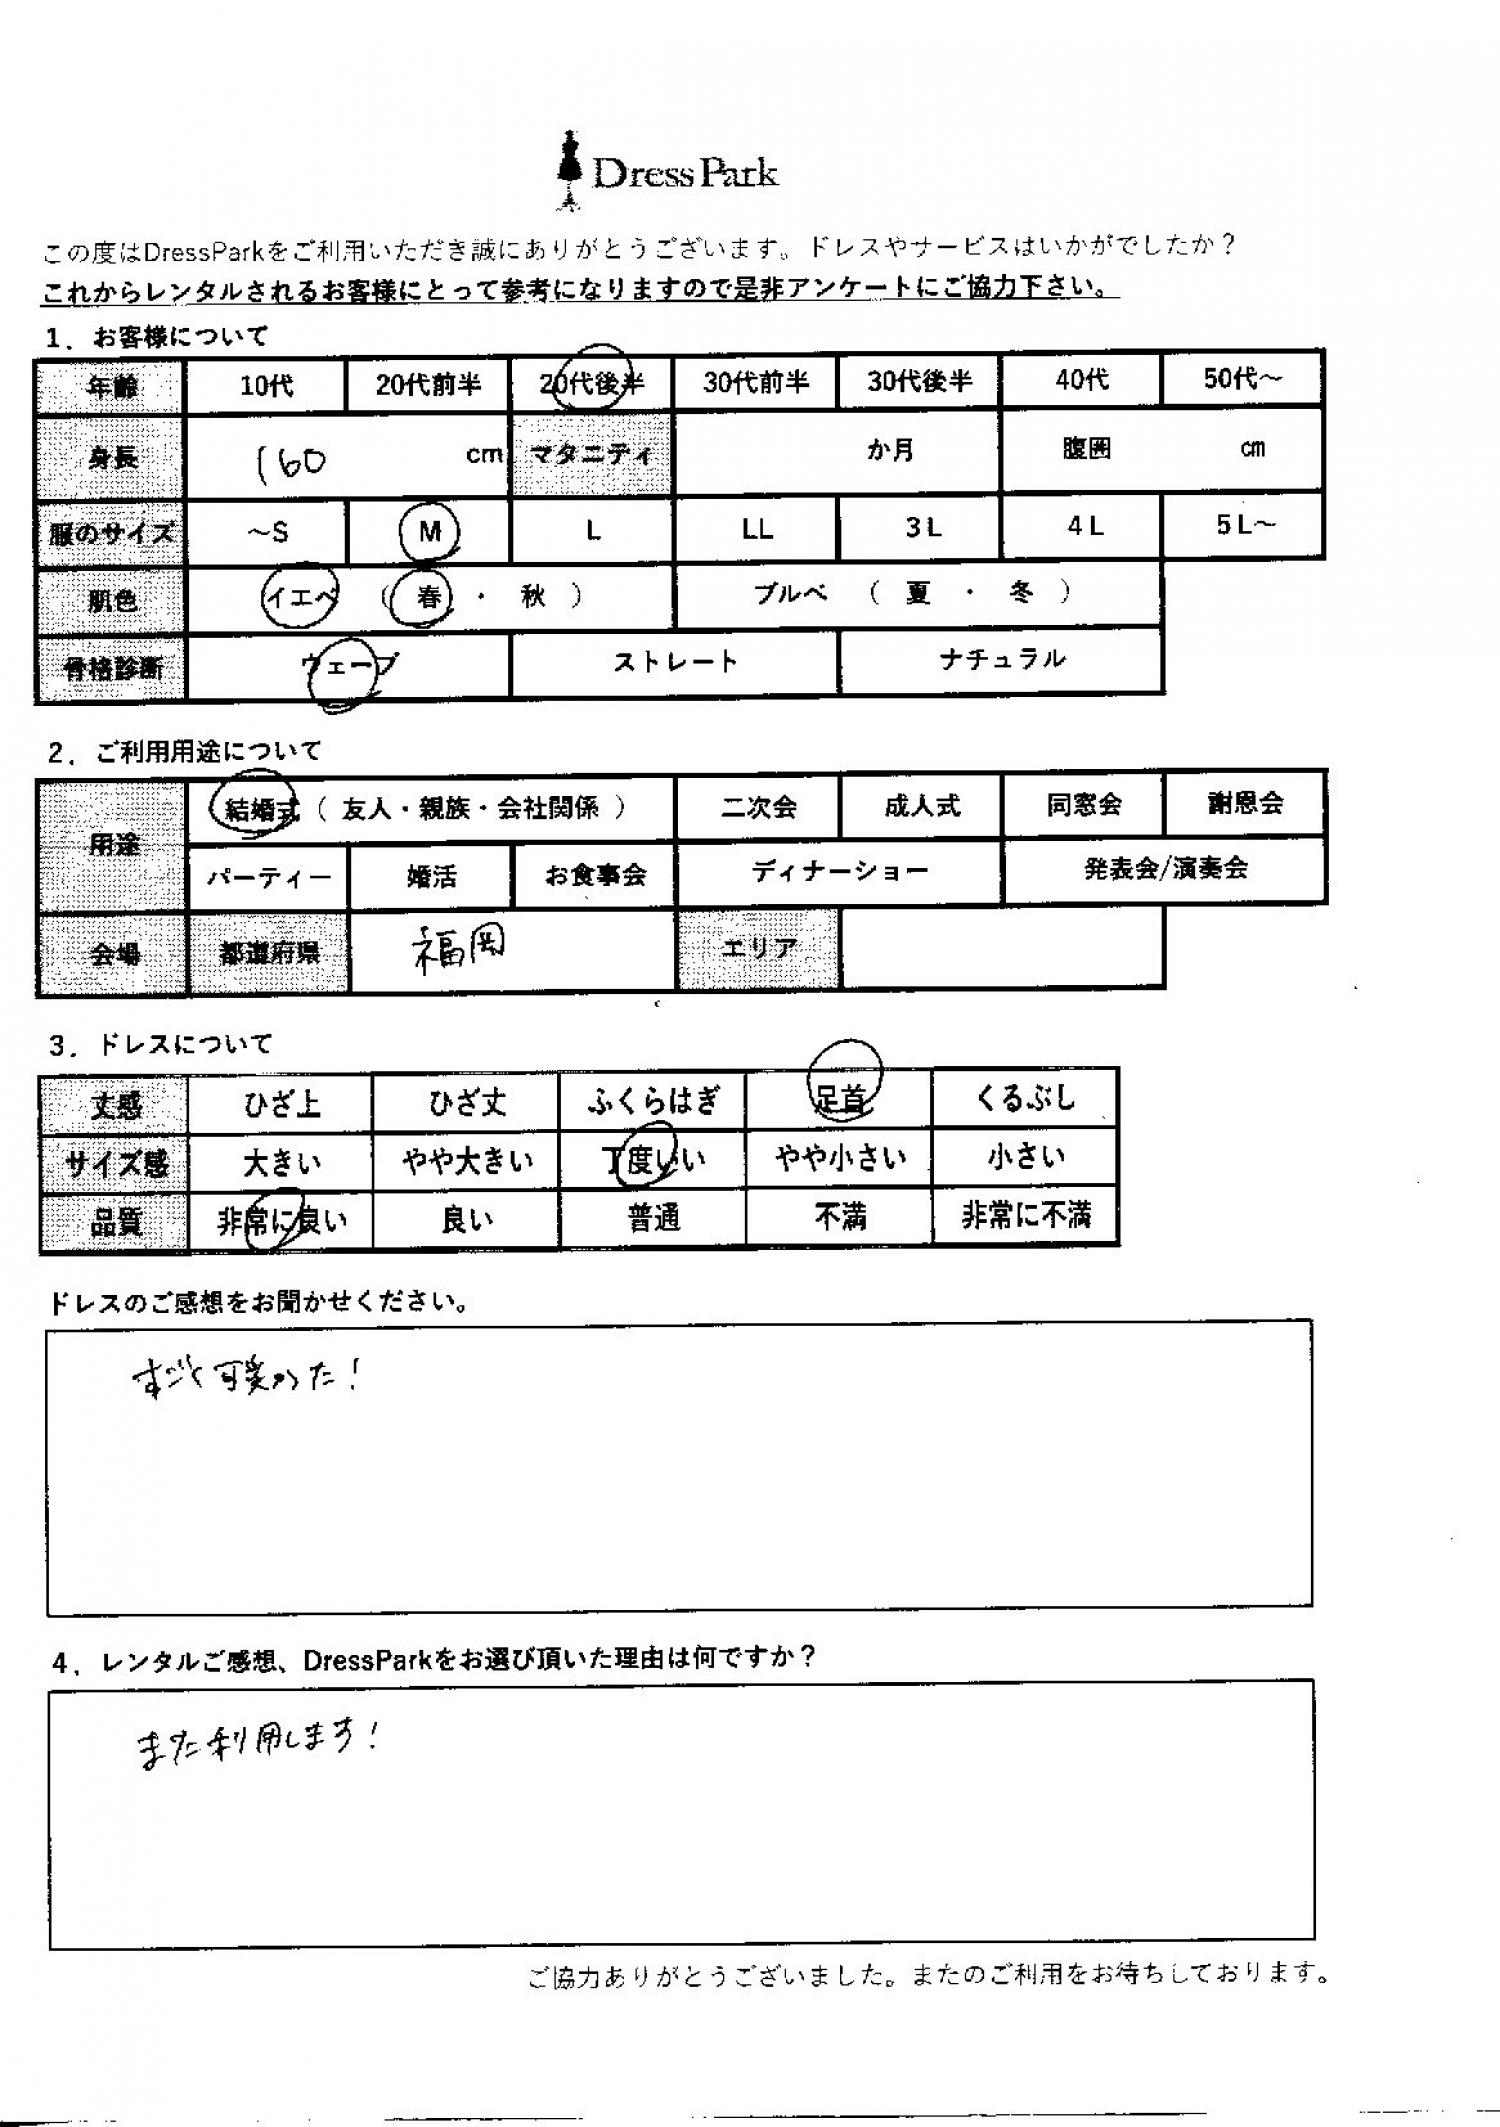 Dress Park
この度はDressParkをご利用いただき誠にありがとうございます。ドレスやサービスはいかがでしたか？
これからレンタルされるお客様にとって参考になりますので是非アンケートにご協力下さい。
1．お客様について
年齢 10代 20代前半 20代後半 30代前半 30代後半 40代 50代～
身長 160 cm マタニティ か月 腹囲 cm
服のサイズ ～S M L LL 3L 4L 5L～
肌色 イエベ （ 春 ・ 秋 ） ブルベ （ 夏 ・ 冬 ）
骨格診断 ウェーブ ストレート ナチュラル
2．ご利用用途について
用途 結婚式（ 友人・親族・会社関係 ） 二次会 成人式 同窓会 謝恩会
パーティー 婚活 お食事会 ディナーショー 発表会/演奏会
会場 都道府県 福岡 エリア
3．ドレスについて
丈感 ひざ上 ひざ丈 ふくらはぎ 足首 くるぶし
サイズ感 大きい やや大きい 丁度いい やや小さい 小さい
品質 非常に良い 良い 普通 不満 非常に不満
ドレスのご感想をお聞かせください。
すごく可愛かった！
4．レンタルご感想、DressParkをお選び頂いた理由は何ですか？
また利用します！
ご協力ありがとうございました。またのご利用をお待ちしております。